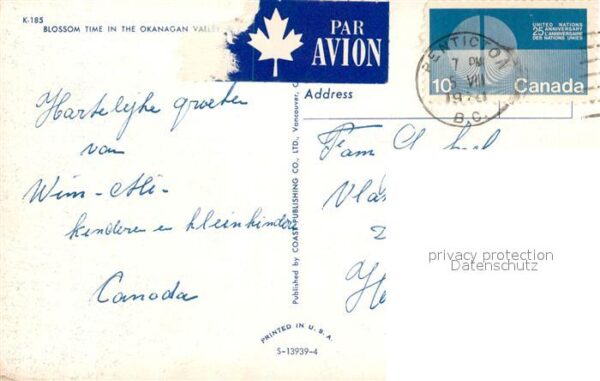 K-185
BLOSSOM TIME IN THE OKANAGAN VALLEY
PAR
AVION
UNITED NATIONS
25 ANNIVERSARY
L'ANNIVERSAIRE
DES NATIONS UNIES
10 Canada
PENTICTON
7 PM
VIII
B.C.
Address
Hartelijke groeten
van
Wim - Ali -
kinderen en kleinkinderen
Canada
Fam
Published by COAST PUBLISHING CO., LTD., Vancouver,
privacy protection
Datenschutz
PRINTED IN U. S. A.
S-13939-4